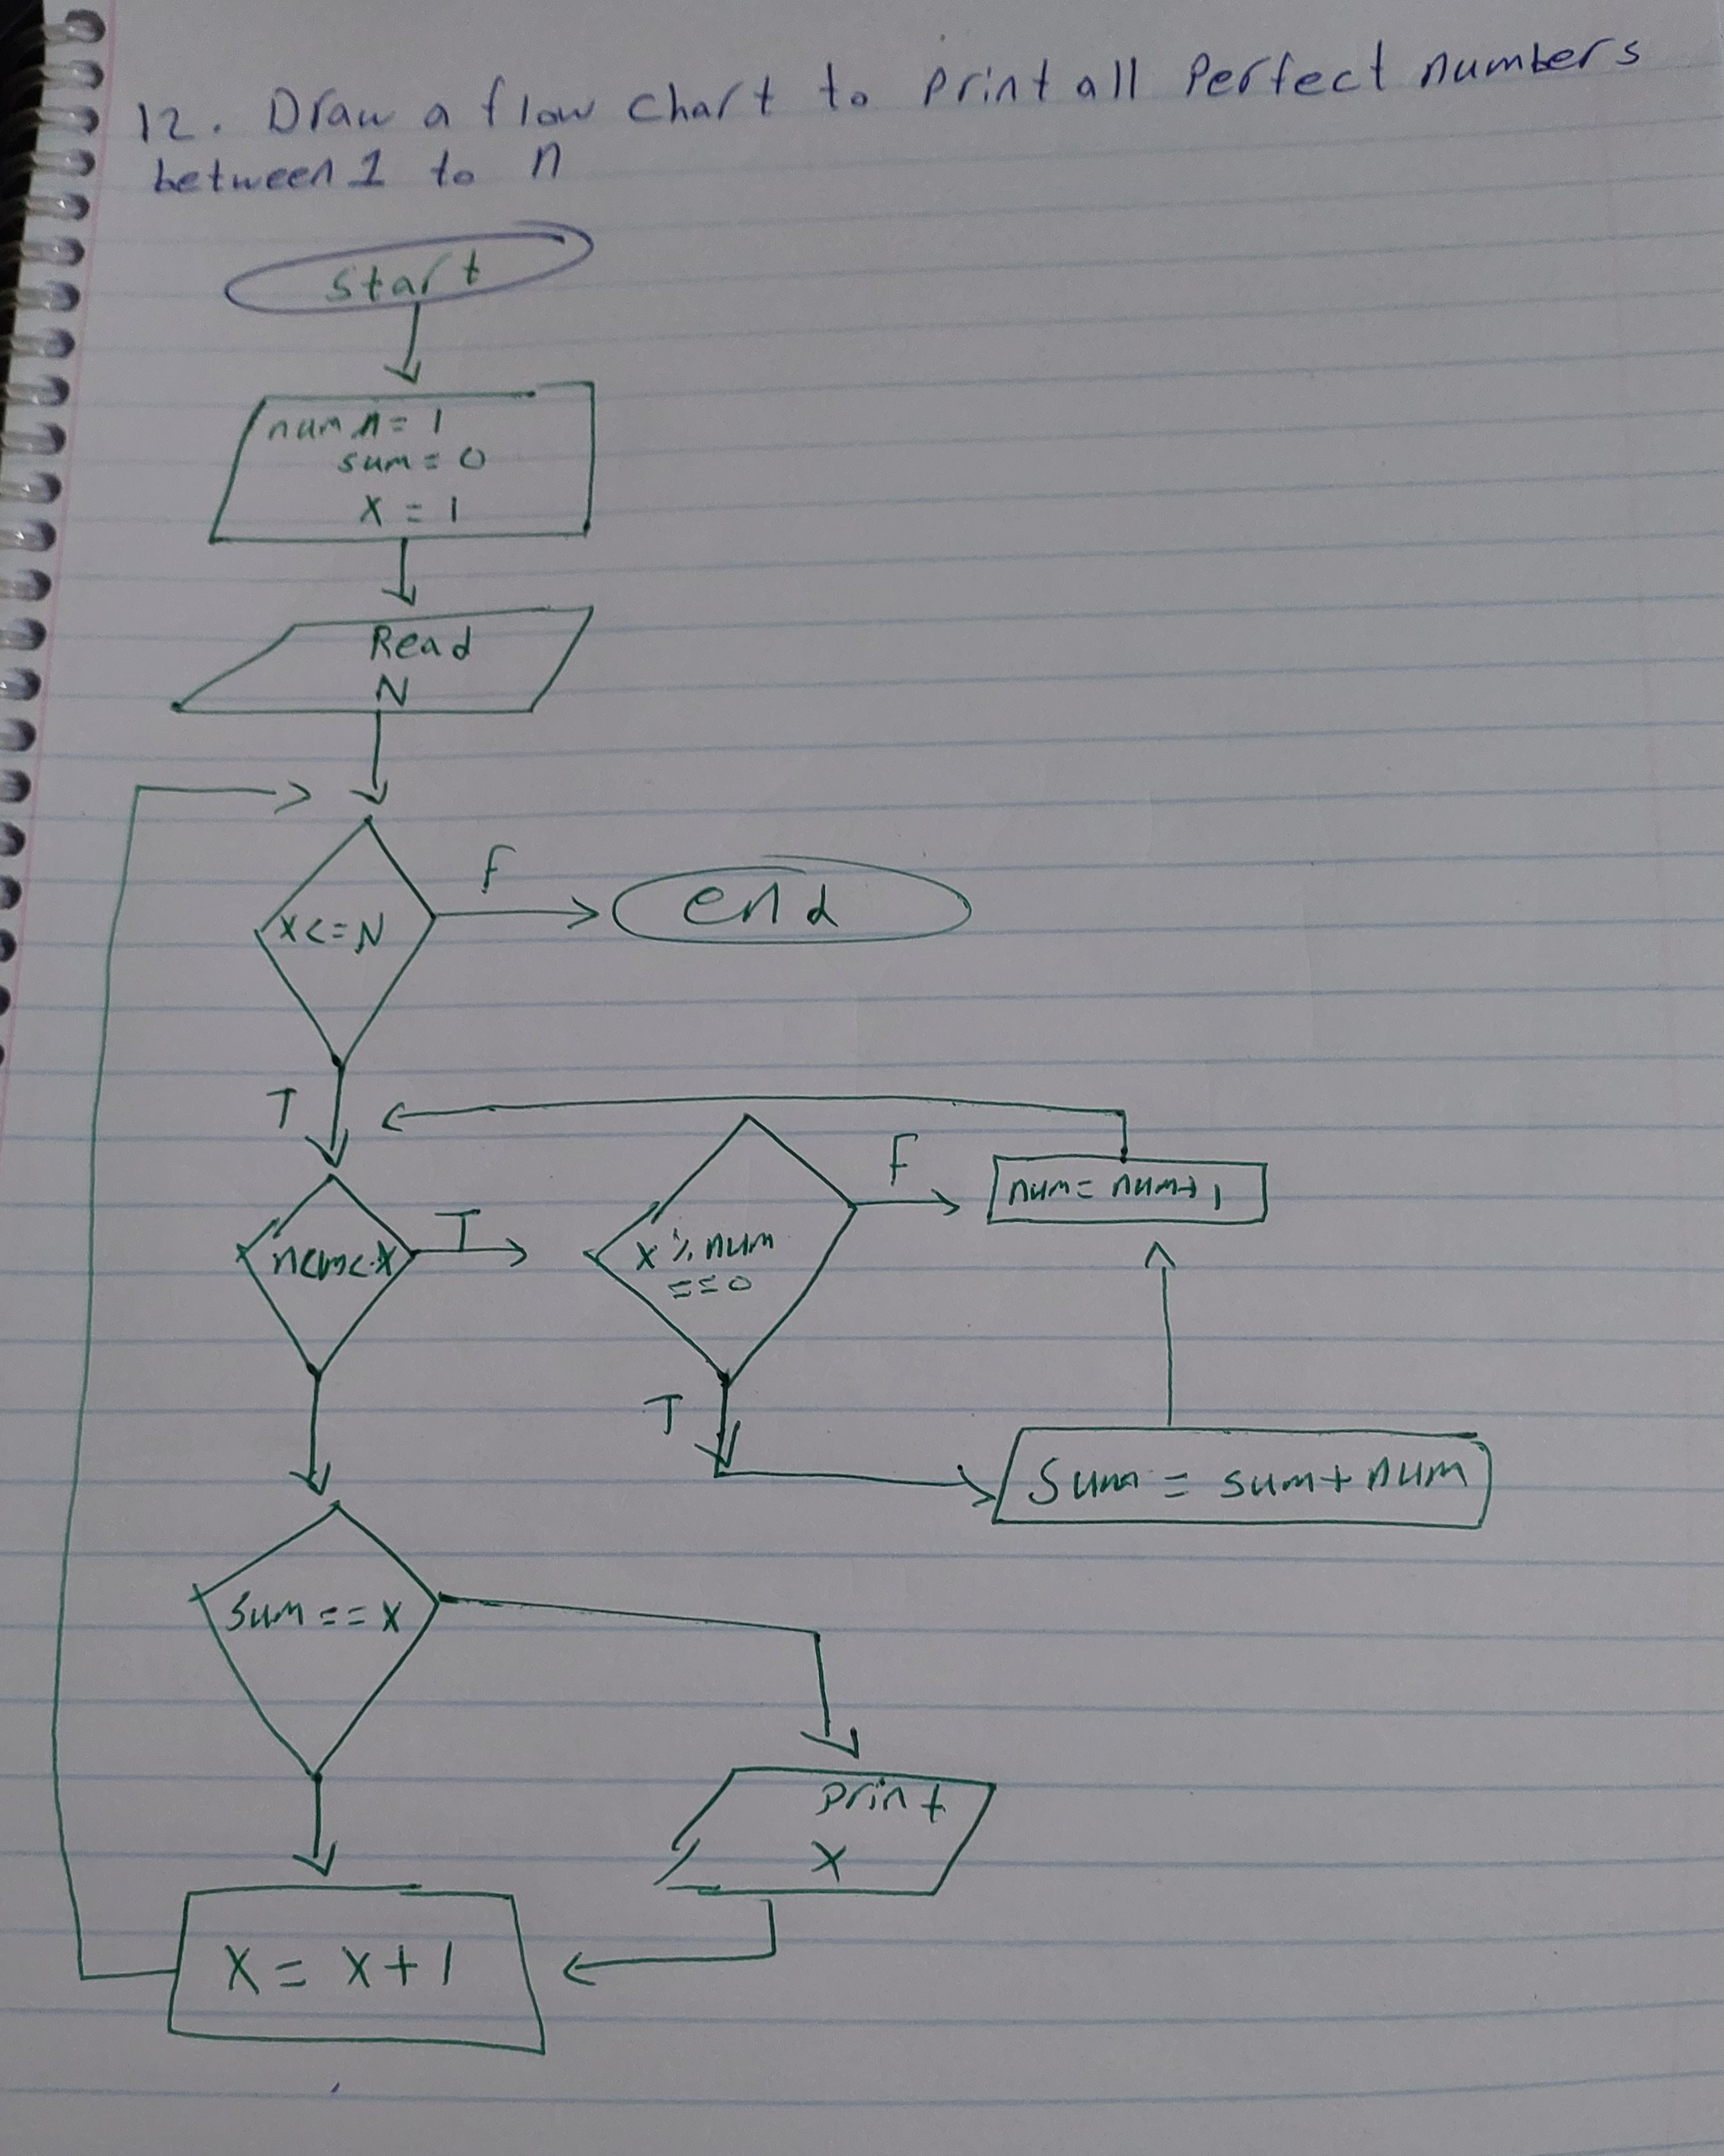 12. Draw a flow chart to print all Perfect numbers
between 1 to n
start
num = 1
sum = 0
X = 1
Read
N
X<=N
F
end
T
num<X
T
X % num
==0
F
num= num+1
T
Sum = sum+num
Sum==X
print
X
X = X+1